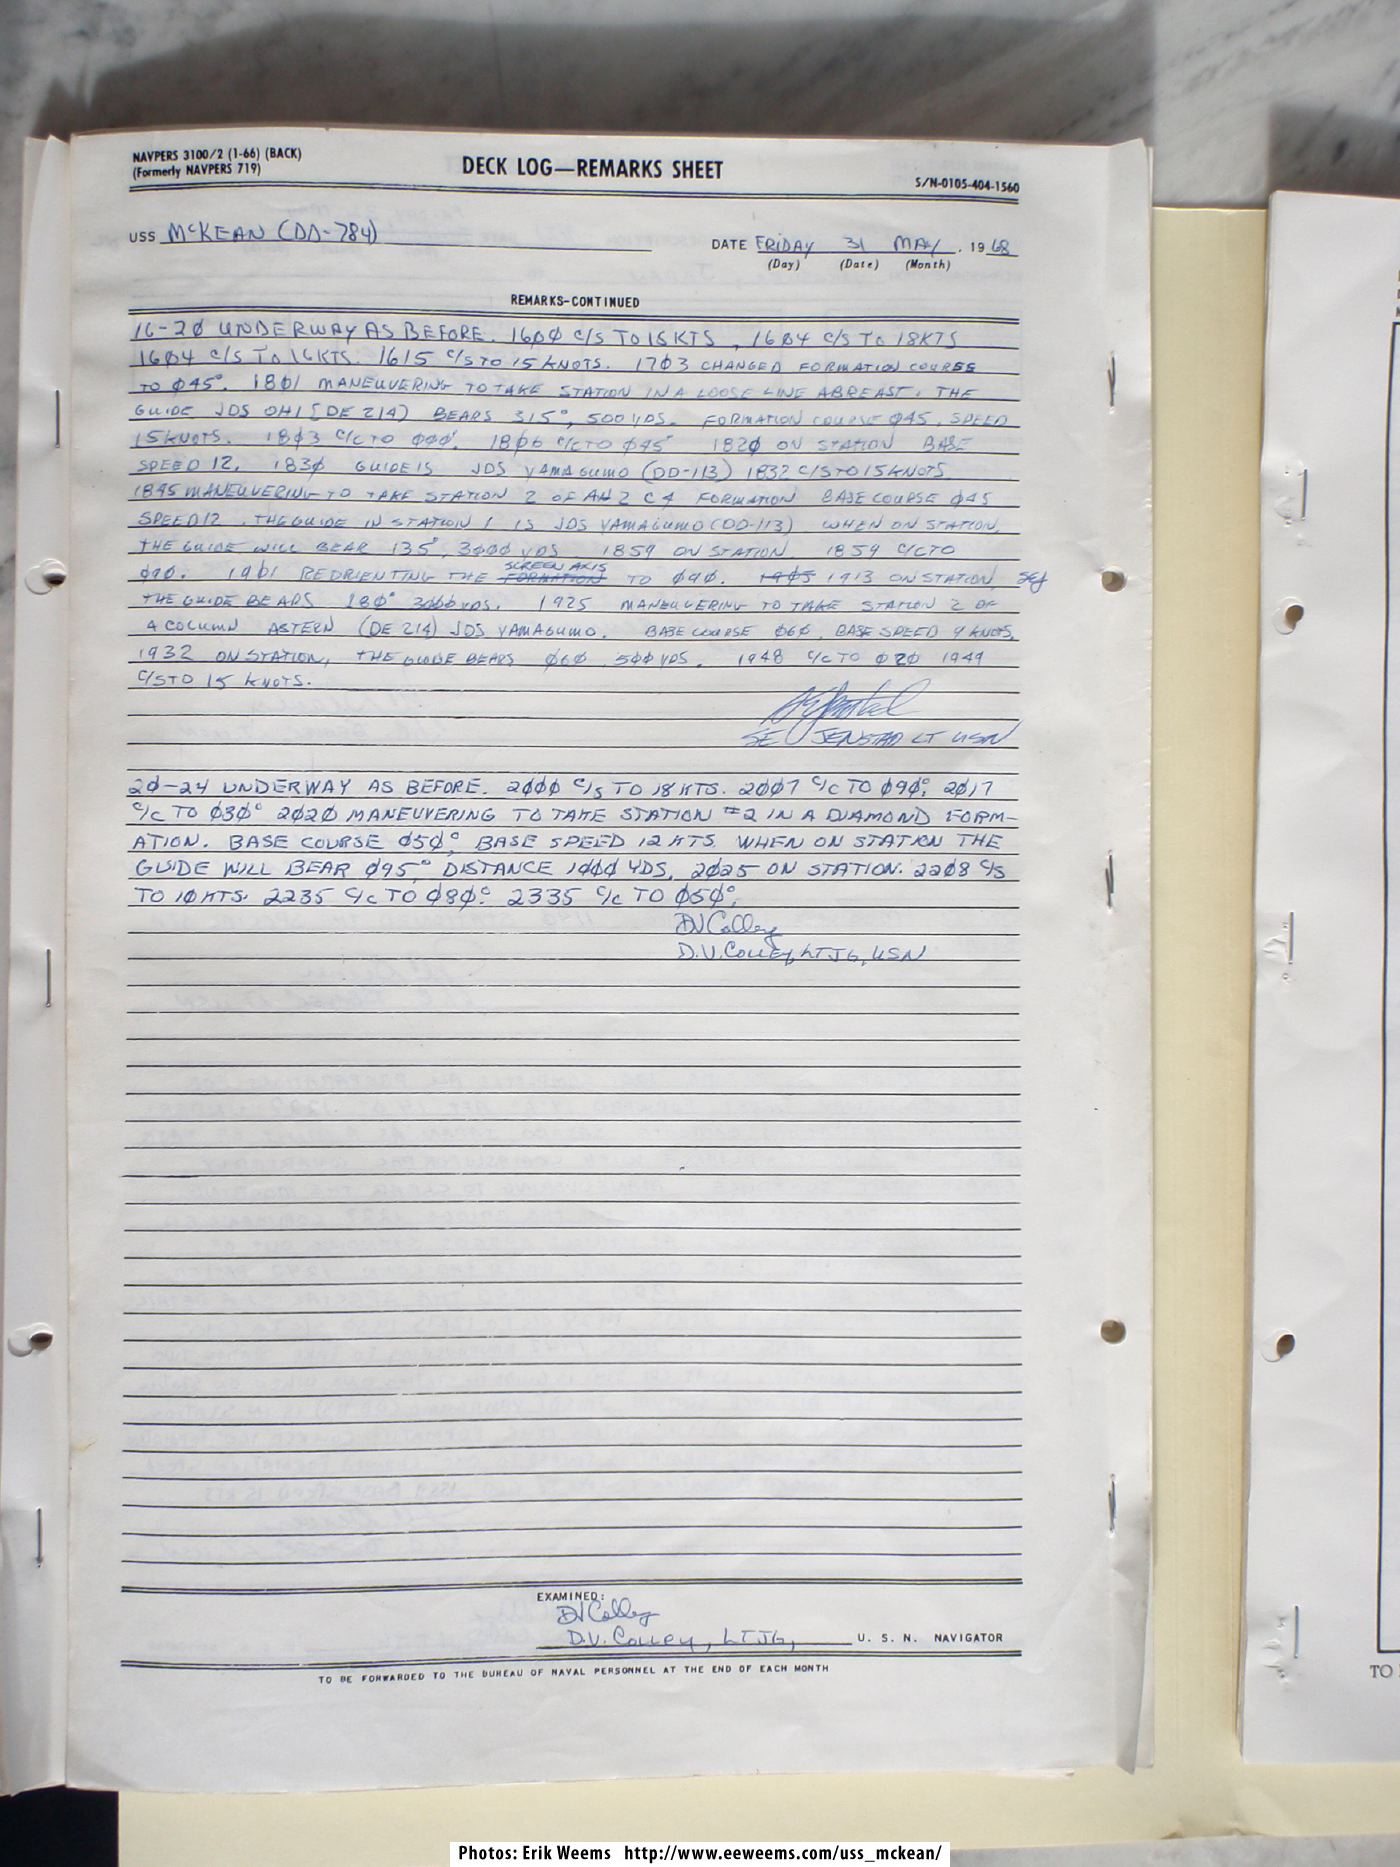 NAVPERS 3100/2 (1-66) (BACK)
(Formerly NAVPERS 719)
DECK LOG—REMARKS SHEET
S/N-0105-404-1560
USS McKEAN (DD-784)
DATE FRIDAY 31 MAY, 1968
(Day) (Date) (Month)
REMARKS-CONTINUED
16-20 UNDERWAY AS BEFORE. 1600 C/S TO 15 KTS, 1604 C/S TO 18KTS
1604 C/S TO 16KTS. 1615 C/S TO 15 KNOTS. 1703 CHANGED FORMATION COURSE
TO 045°. 1801 MANEUVERING TO TAKE STATION IN A LOOSE LINE ABREAST. THE
GUIDE JDS OHI (DE 214) BEARS 315°, 500 YDS. FORMATION COURSE 045, SPEED
15 KNOTS. 1803 C/C TO 000°. 1806 C/C TO 045° 1820 ON STATION BASE
SPEED 12. 1830 GUIDE IS JDS YAMAGUMO (DD-113) 1832 C/S TO 15 KNOTS
1845 MANEUVERING TO TAKE STATION 2 OF AN 2 C 4 FORMATION BASE COURSE 045
SPEED 12. THE GUIDE IN STATION 1 IS JDS YAMAGUMO (DD-113) WHEN ON STATION,
THE GUIDE WILL BEAR 135°, 3000 YDS. 1859 ON STATION. 1859 C/C TO
090. 1901 REORIENTING THE FORMATION SCREEN AXIS TO 090. 1905 1913 ON STATION, SEJ
THE GUIDE BEARS 180° 3000 YDS. 1925 MANEUVERING TO TAKE STATION 2 OF
A COLUMN ASTERN (DE 214) JDS YAMAGUMO. BASE COURSE 060, BASE SPEED 9 KNOTS.
1932 ON STATION, THE GUIDE BEARS 060 500 YDS. 1948 C/C TO 020 1949
C/S TO 15 KNOTS.
SE JENSTAD LT USN
20-24 UNDERWAY AS BEFORE. 2000 C/S TO 18 KTS. 2007 C/C TO 090°, 2017
C/C TO 030° 2020 MANEUVERING TO TAKE STATION #2 IN A DIAMOND FORM-
ATION. BASE COURSE 050°, BASE SPEED 12 KTS. WHEN ON STATION THE
GUIDE WILL BEAR 095° DISTANCE 1000 YDS. 2025 ON STATION. 2208 C/S
TO 10 KTS. 2235 C/C TO 080°. 2335 C/C TO 050°.
DV Colley
D.V. COLLEY, LTJG, USN
EXAMINED:
DV Colley
D.V. COLLEY, LTJG, U. S. N. NAVIGATOR
TO BE FORWARDED TO THE BUREAU OF NAVAL PERSONNEL AT THE END OF EACH MONTH
TO
Photos: Erik Weems http://www.eeweems.com/uss_mckean/